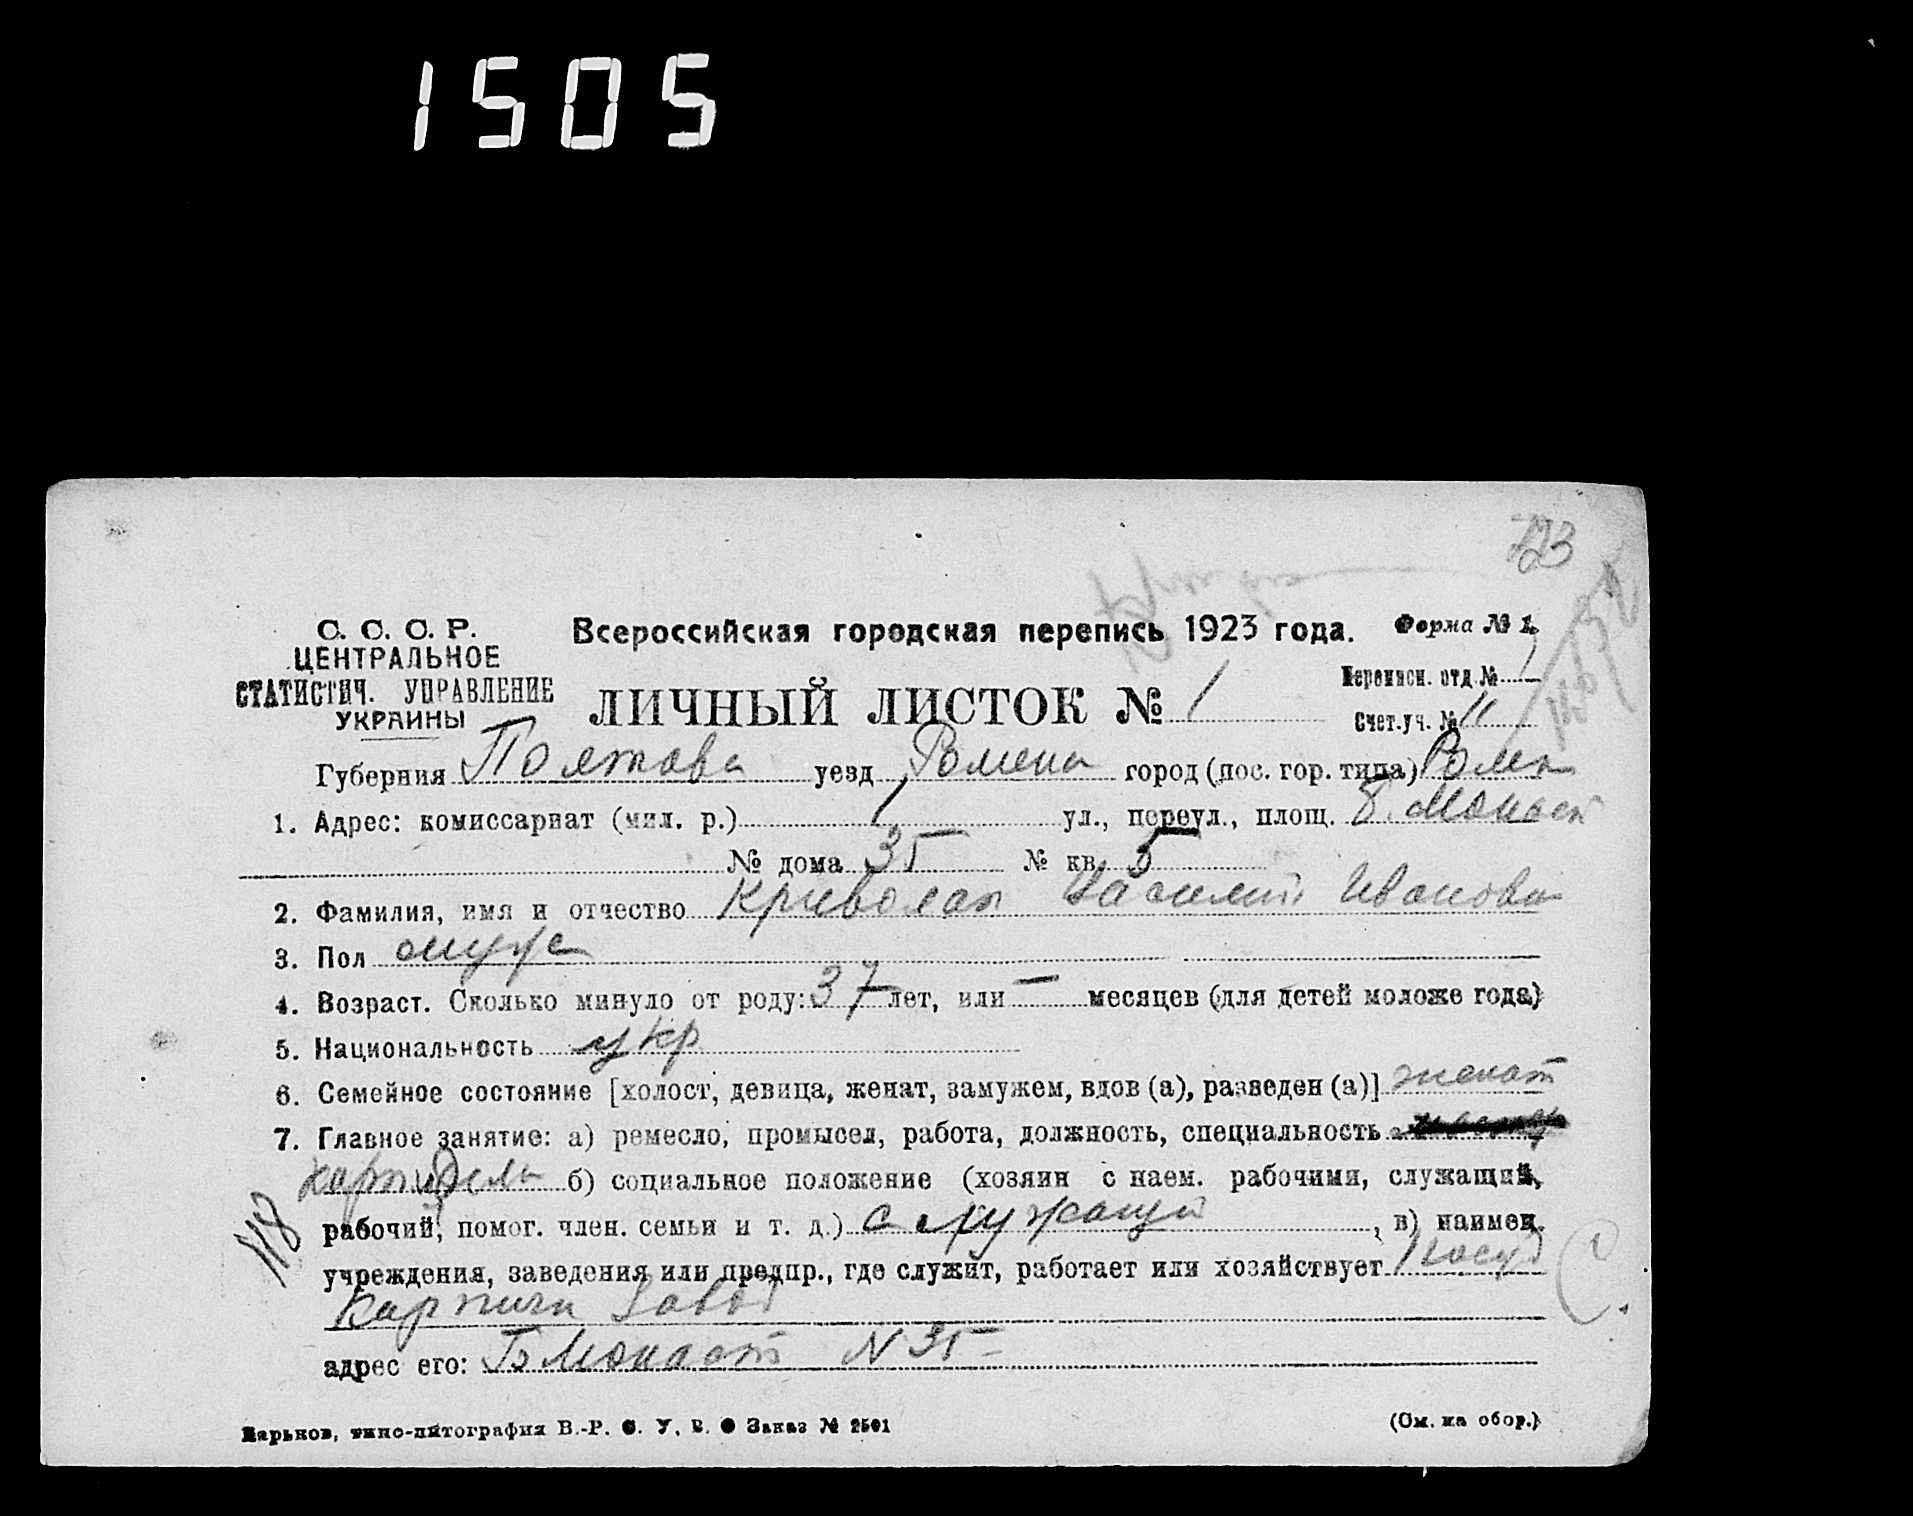 1505
С. С. С. Р.
ЦЕНТРАЛЬНОЕ
СТАТИСТИЧ. УПРАВЛЕНИЕ
УКРАИНЫ
Всероссийская городская перепись 1923 года.
Форма № 1.
ЛИЧНЫЙ ЛИСТОК № 1
Переписн. отд. № 1
Счет.уч. № 11
Губерния Полтава уезд Ромена город (пос. гор. типа) Ромн
1. Адрес: комиссариат (мил. р.) 1 ул., переул., площ. Б. Монаст
№ дома 35 № кв. 5
2. Фамилия, имя и отчество Криволап Василий Иванови
3. Пол муж
4. Возраст. Сколько минуло от роду: 37 лет, или — месяцев (для детей моложе года)
5. Национальность укр
6. Семейное состояние [холост, девица, женат, замужем, вдов (а), разведен (а)] женат
7. Главное занятие: а) ремесло, промысел, работа, должность, специальность
б) социальное положение (хозяин с наем. рабочими, служащий,
рабочий, помог. член. семьи и т. д.) служащий, в) наимен.
учреждения, заведения или предпр., где служит, работает или хозяйствует
Кирпичн Завод
адрес его: Б Монаст N 35
118
Харьков, типо-литография В.-Р. С. У. В. Заказ № 2501
(См. на обор.)